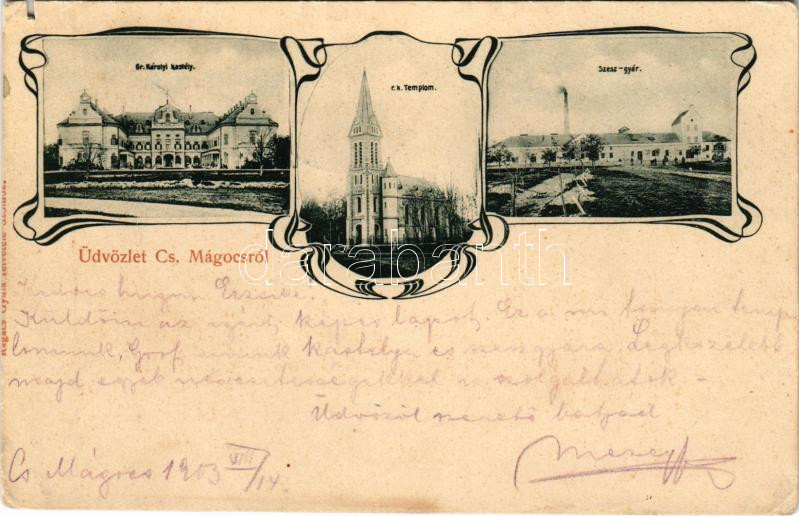 Gr. Károlyi kastély.
r. k. Templom.
Szesz-gyár.
Üdvözlet Cs. Mágocsról
darabanth
Erzsike.
Küldöm az igért képes lapot. Ez a mi
kastélya és szeszgyára. Legközelebb
majd egyéb nevezetességekkel is szolgálhatok –
Üdvözöl szerető bátyád
Cs Mágocs 1903 VIII/14.